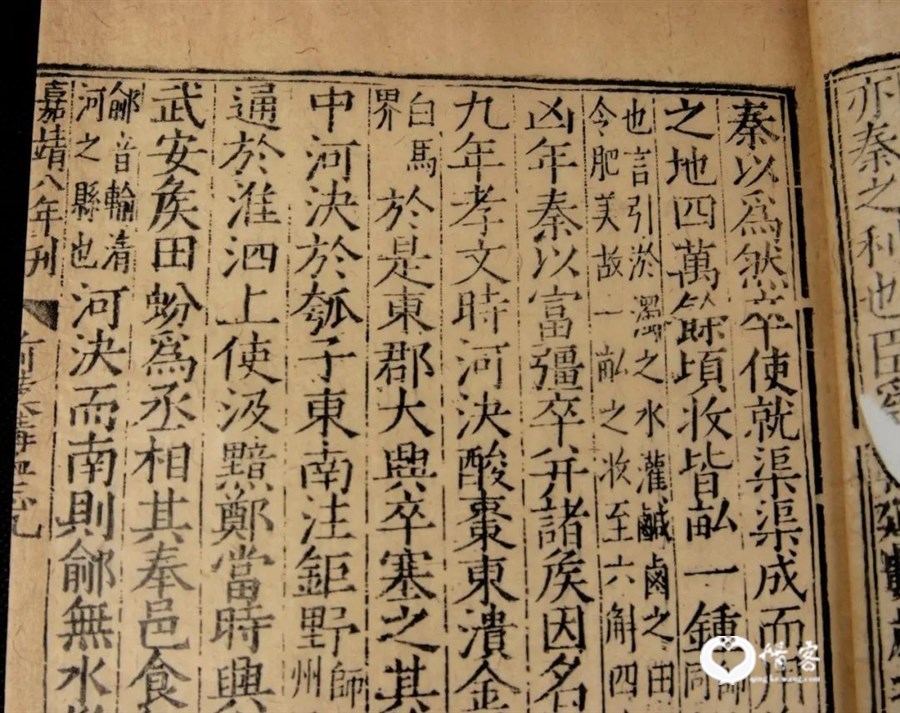 亦秦之利也臣
秦以爲然卒使就渠渠成而用
之地四萬餘頃收皆畆一鍾師
同
也言引淤濁之水灌鹹鹵之田
令肥美故一畆之收至六斛四
凶年秦以富彊卒并諸矦因名
九年孝文時河決酸棗東潰金
白馬
界
於是東郡大興卒塞之其
中河決於瓠子東南注鉅野師
州
通於淮泗上使汲黯鄭當時興
武安矦田蚡爲丞相其奉邑食
鄃音輸清
河之縣也
河決而南則鄃無水
嘉靖八年刊